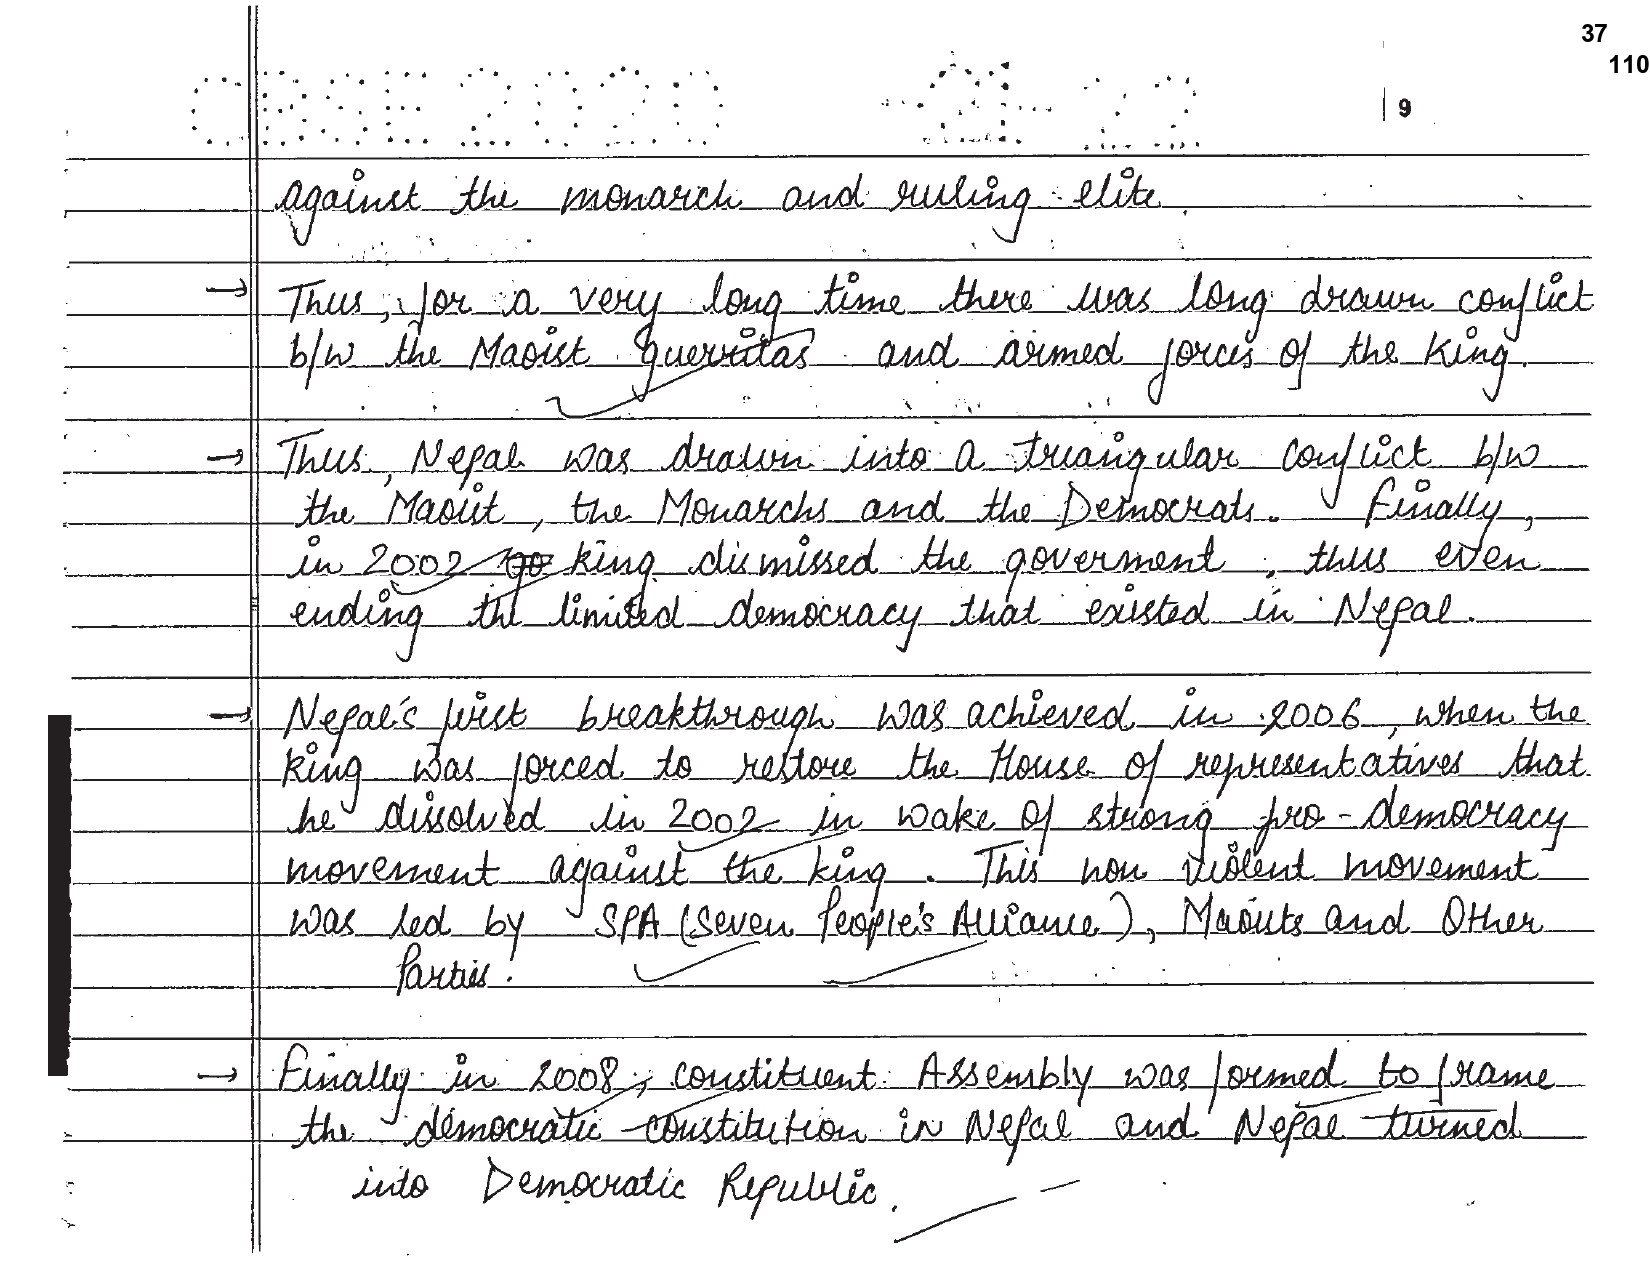 37
110
CBSE 2020
9
against the monarch and ruling elite
→ Thus, for a very long time there was long drawn conflict
b/w the Maoist guerrilas and armed forces of the King.
→ Thus, Nepal was drawn into a triangular conflict b/w
the Maoist, the Monarchs and the Democrats. Finally,
in 2002 king dismissed the goverment, thus even
ending the limited democracy that existed in Nepal.
→ Nepal's first breakthrough was achieved in 2006, when the
king was forced to restore the House of representatives that
he dissolved in 2002 in wake of strong pro-democracy
movement against the king. This non violent movement
was led by SPA (Seven People's Alliance), Maoists and Other
Parties.
→ Finally in 2008, constituent Assembly was formed to frame
the democratic constitution in Nepal and Nepal turned
into Democratic Republic.